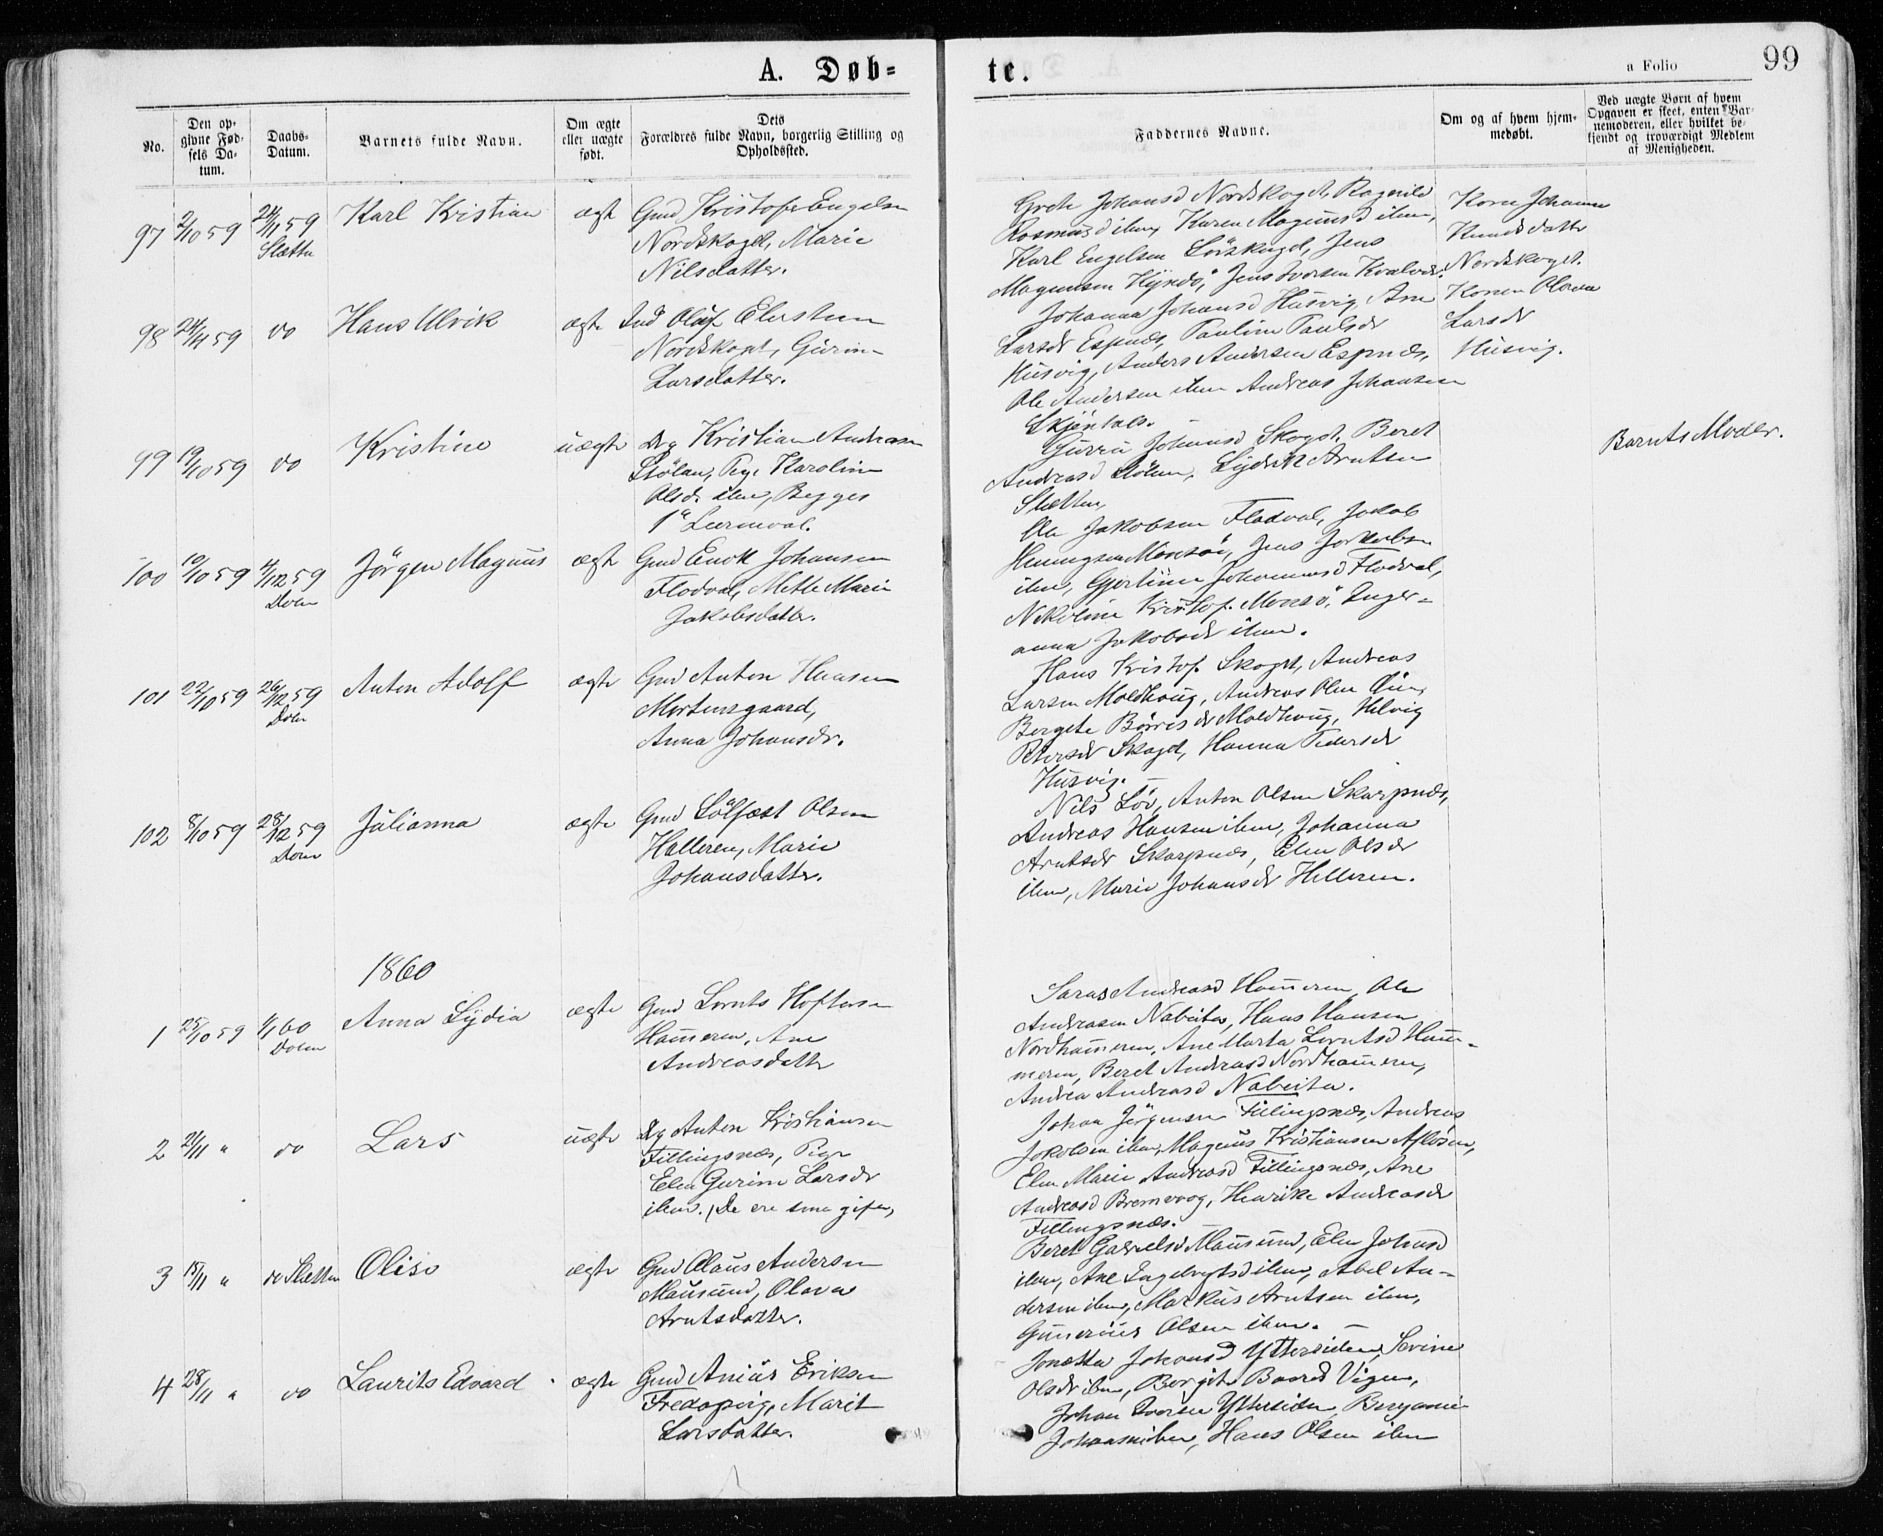 A. Døb-
te.
a Folio
99
No.
Den op-
givne Fød-
sels Da-
tum.
Daabs-
Datum.
Barnets fulde Navn.
Om ægte
eller uægte
født.
Dets
Forældres fulde Navn, borgerlig Stilling og
Opholdssted.
Faddernes Navne.
Om og af hvem hjem-
medøbt.
Ved uægte Børn af hvem
Opgaven er skeet, enten Bar-
nemoderen, eller hvilket be-
kjendt og troværdigt Medlem
af Menigheden.
97 2/10 59 24/11 59 Karl Kristian ægte Gmd Kristofer Engelsen
Slettu
Nordskaget, Marie
Nilsdatter.
Grete Johansd Nordskaget, Ragnild
Rasmusd ibm, Karen Magnusd ibm,
Karl Engelsen Sørskaget, Jens
Magnusen Hyndø, Jens Iversen
Kone Johanna
Knudsdatter
Nordskaget.
98 24/4 59 do Hans Ulvik ægte Ind Oluf Elertsen
Nordskaget, Gurine
Larsdatter.
Johanna Johansd Husvig, Ane
Larsdr Espnæs, Pauline Paulsdr
Husvig, Anders Andersen Espnæs,
Ole Andersen ibm Andreas Johansen
Konen Olava
Larsdr
Husvig.
99 19/10 59 do Kristine uægte Kristian Andreasen
Stølan, Pige Karoline
Olsd. ibm, Begges
1ste Leiermaal.
Gurru Johansd Skaget, Beret
Andreasd Stølan, Arntsen
Sletten,
Barnets Moder.
100 10/10 59 4/12 59 Jörgen Magnus ægte Gmd Enok Johansen
Dolm
Flodval, Mette Marie
Jakobsdatter.
Ole Jakobsen Flodval, Jakob
Henningsen Monsø, Jens Jakobsen
ibm, Gjertine Johannesd Flodval,
Nikoline Kristof. Monsø, Inger-
anna Jakobsdr ibm.
101 22/10 59 26/12 59 Anton Adolf ægte Gmd Anton Hansen
Dolm
Mortensgaard,
Anna Johansdr.
Hans Kristof. Skaget, Andreas
Larsen Moldhoug, Andreas Olsen
Bergete Moldhoug, Helvig
Petersdr Skaget, Hanna Pedersdr
Husvig.
102 8/10 59 28/12 59 Julianna ægte Gmd Sølfæst Olsen
Dolm
Halleren, Marie
Johansdatter.
Nils Anton Olsen Skarpnæs,
Andreas Hansen ibm, Johanna
Arntsdr Skarpnæs, Elen Olsdr
ibm, Marie Johansdr Helleren.
1860
1 25/10 59 1/1 60 Anna Lydia ægte Gmd Lornts Hoftasen
Dolm
Hammeren, Ane
Andreasdatter
Saras Andreasd Hammeren, Ole
Andreasen Nabeita, Hans Hansen
Nordhammeren, Ane Marta Lorntsd Ham-
meren, Beret Andreasd Nordhammeren,
Andrea Andreasd Nabeita.
2 21/11 " do Lars uægte Anton Kristiansen
Fillingsnæs, Pige
Elen Gurine Larsdr
ibm. De ere gifte,
Johan Jörgensen Fillingsnæs, Andreas
Jakobsen ibm, Magnus Kristiansen
Elen Marie Andreasd Fillingsnæs, Ane
Andreasd Bremvog, Henrike Andreasdr
Fillingsnæs.
3 15/11 " do Sletten Olise ægte Gmd Claus Andersen
Mausund, Olava
Arntsdatter.
Beret Gabrielsd Mausund, Elen Johnsd
ibm, Ane Ingebrigtsd ibm, Abel An-
dersen ibm, Markus Arntsen ibm,
Gunerius Olsen ibm.
4 28/11 " do Laurits Edvard ægte Gmd Anius Eriksen
Fredagvig, Marit
Larsdatter.
Jonetta Johansd Yttersiden, Sevrine
Olsdr ibm, Bergit Baardsd Vigen,
Johan Iversen Yttersiden, Benjamin
Johansen ibm, Hans Olsen ibm